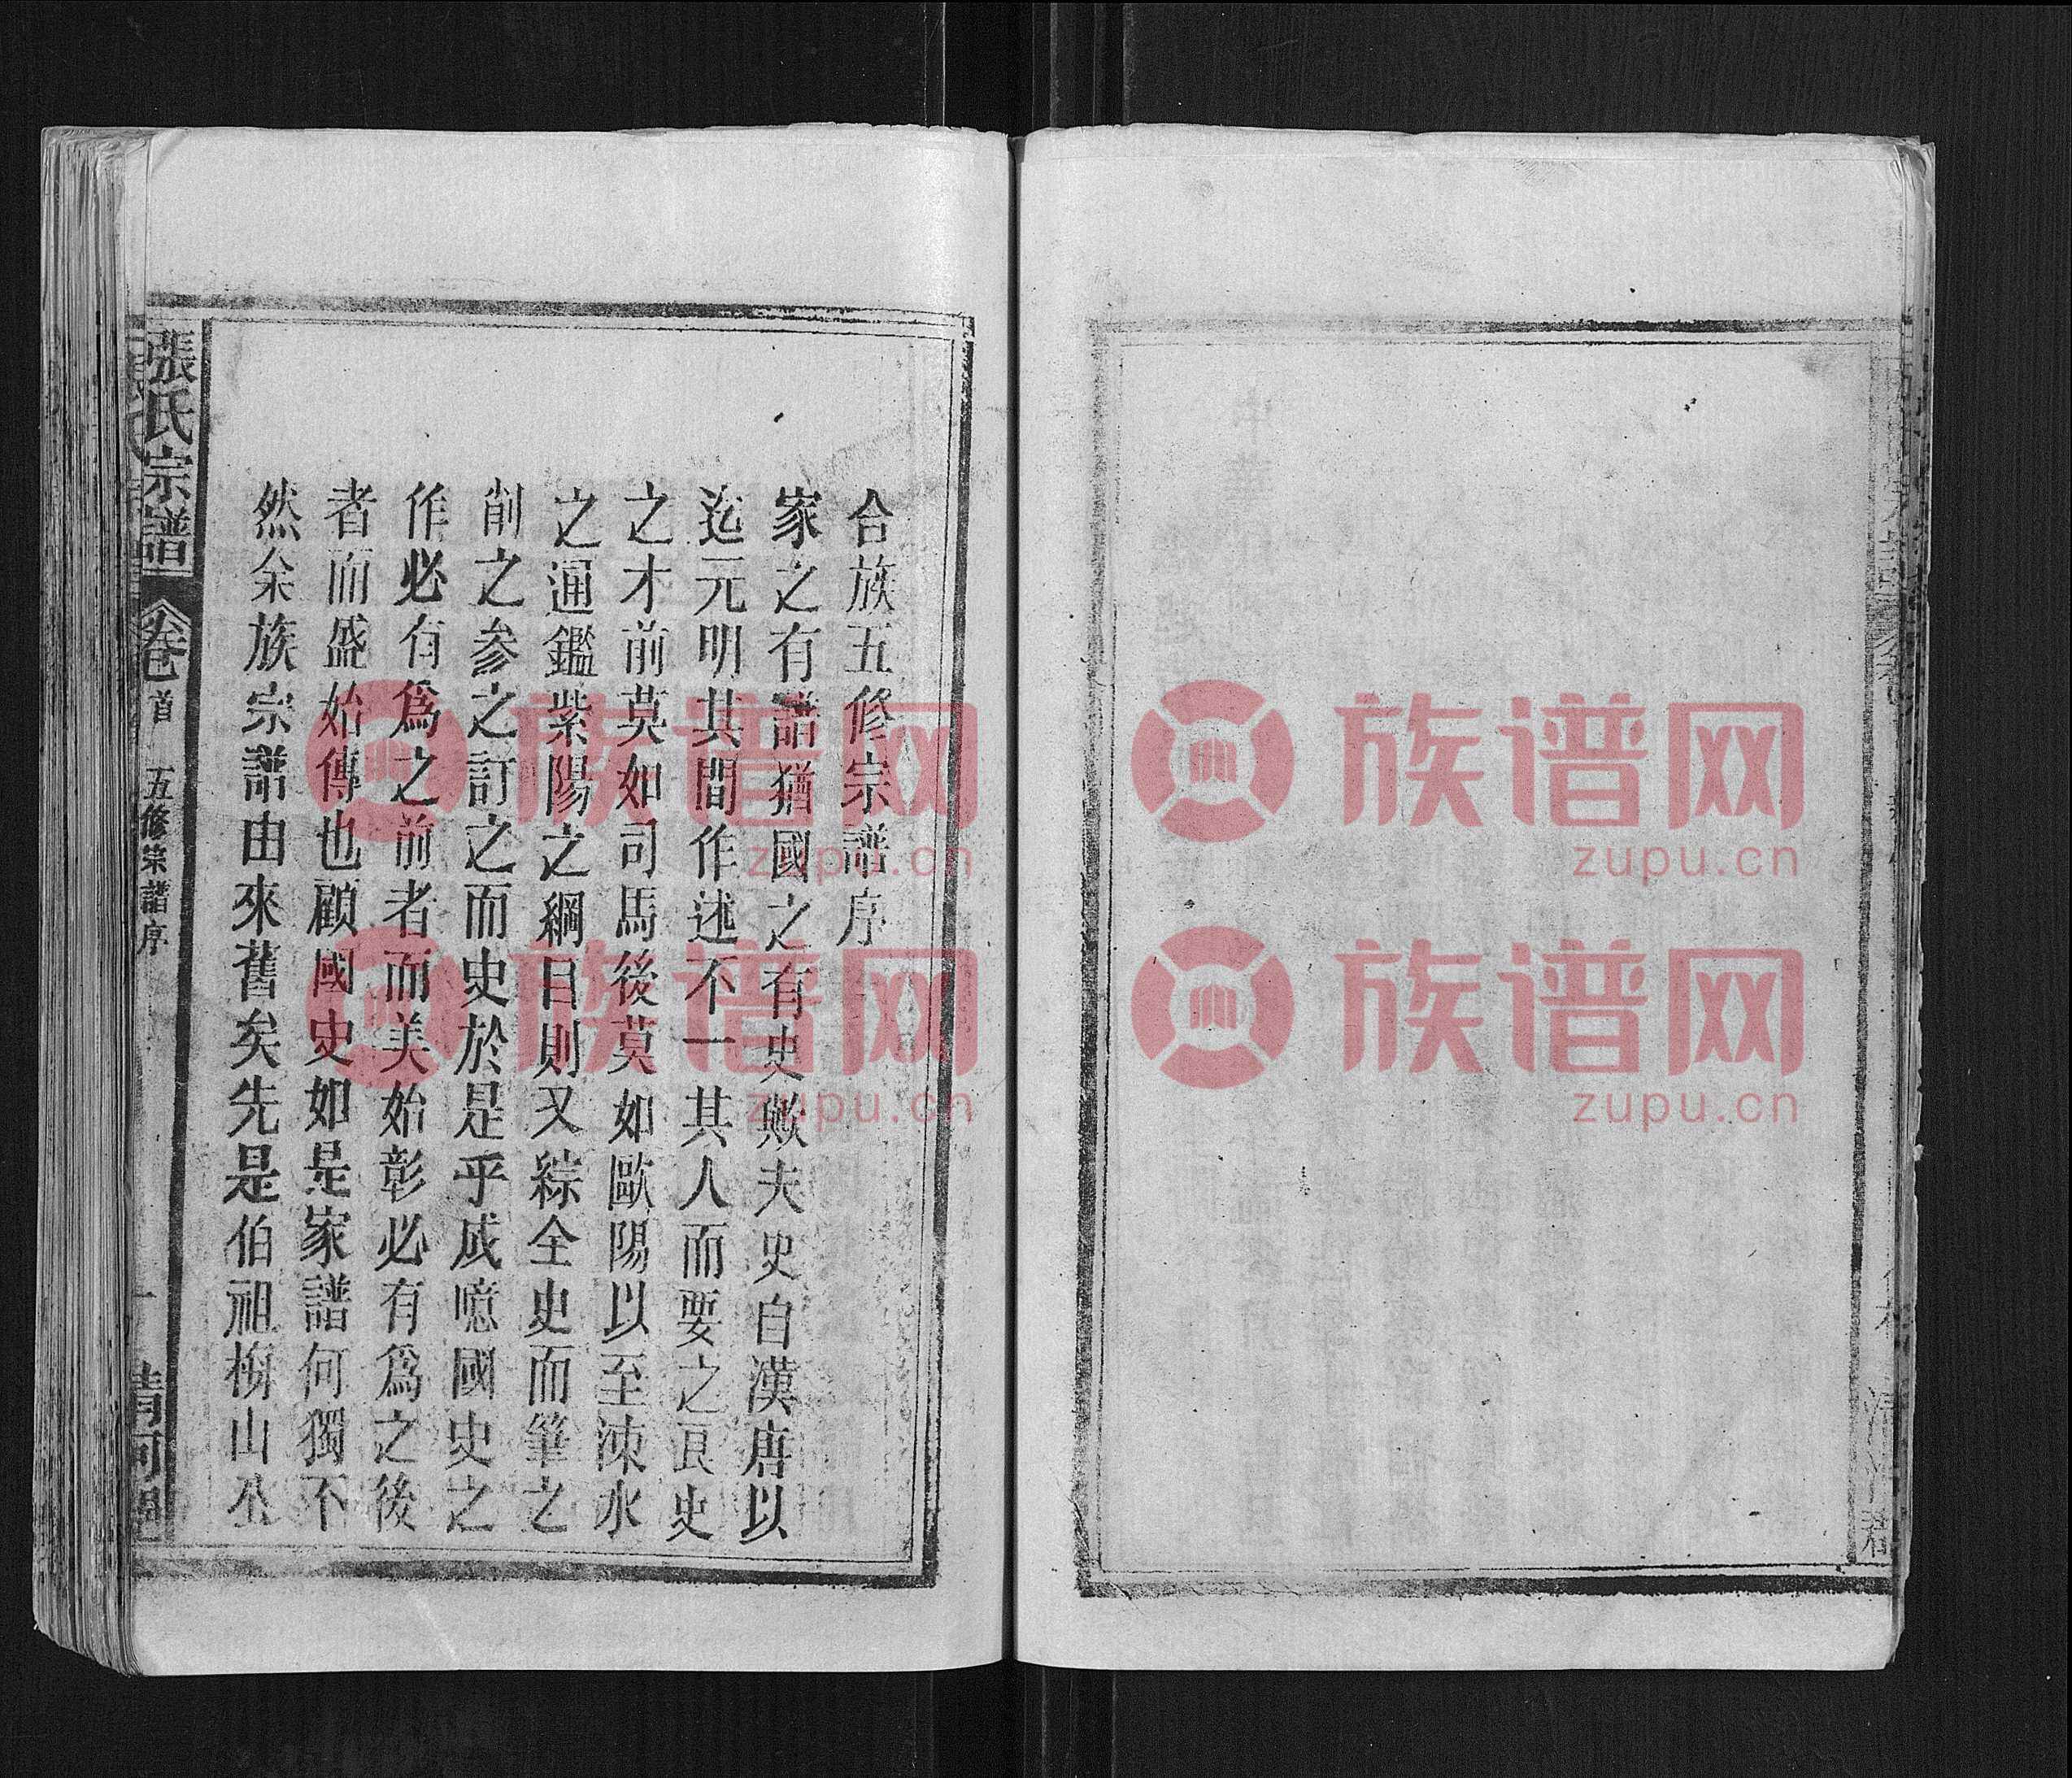 合族五修宗譜序
家之有譜猶國之有史歟夫史自漢唐以
迄元明其間作述不一其人而要之良史
之才前莫如司馬後莫如歐陽以至涑水
之通鑑紫陽之綱目則又綜全史而筆之
削之參之訂之而史於是乎成噫國史之
作必有為之前者而美始彰必有為之後
者而盛始傳也顧國史如是家譜何獨不
然余族宗譜由來舊矣先是伯祖梅山公
張氏宗譜
卷首
五修宗譜序
一
清河
族谱网
zupu.cn
族谱网
zupu.cn
族谱网
zupu.cn
族谱网
zupu.cn